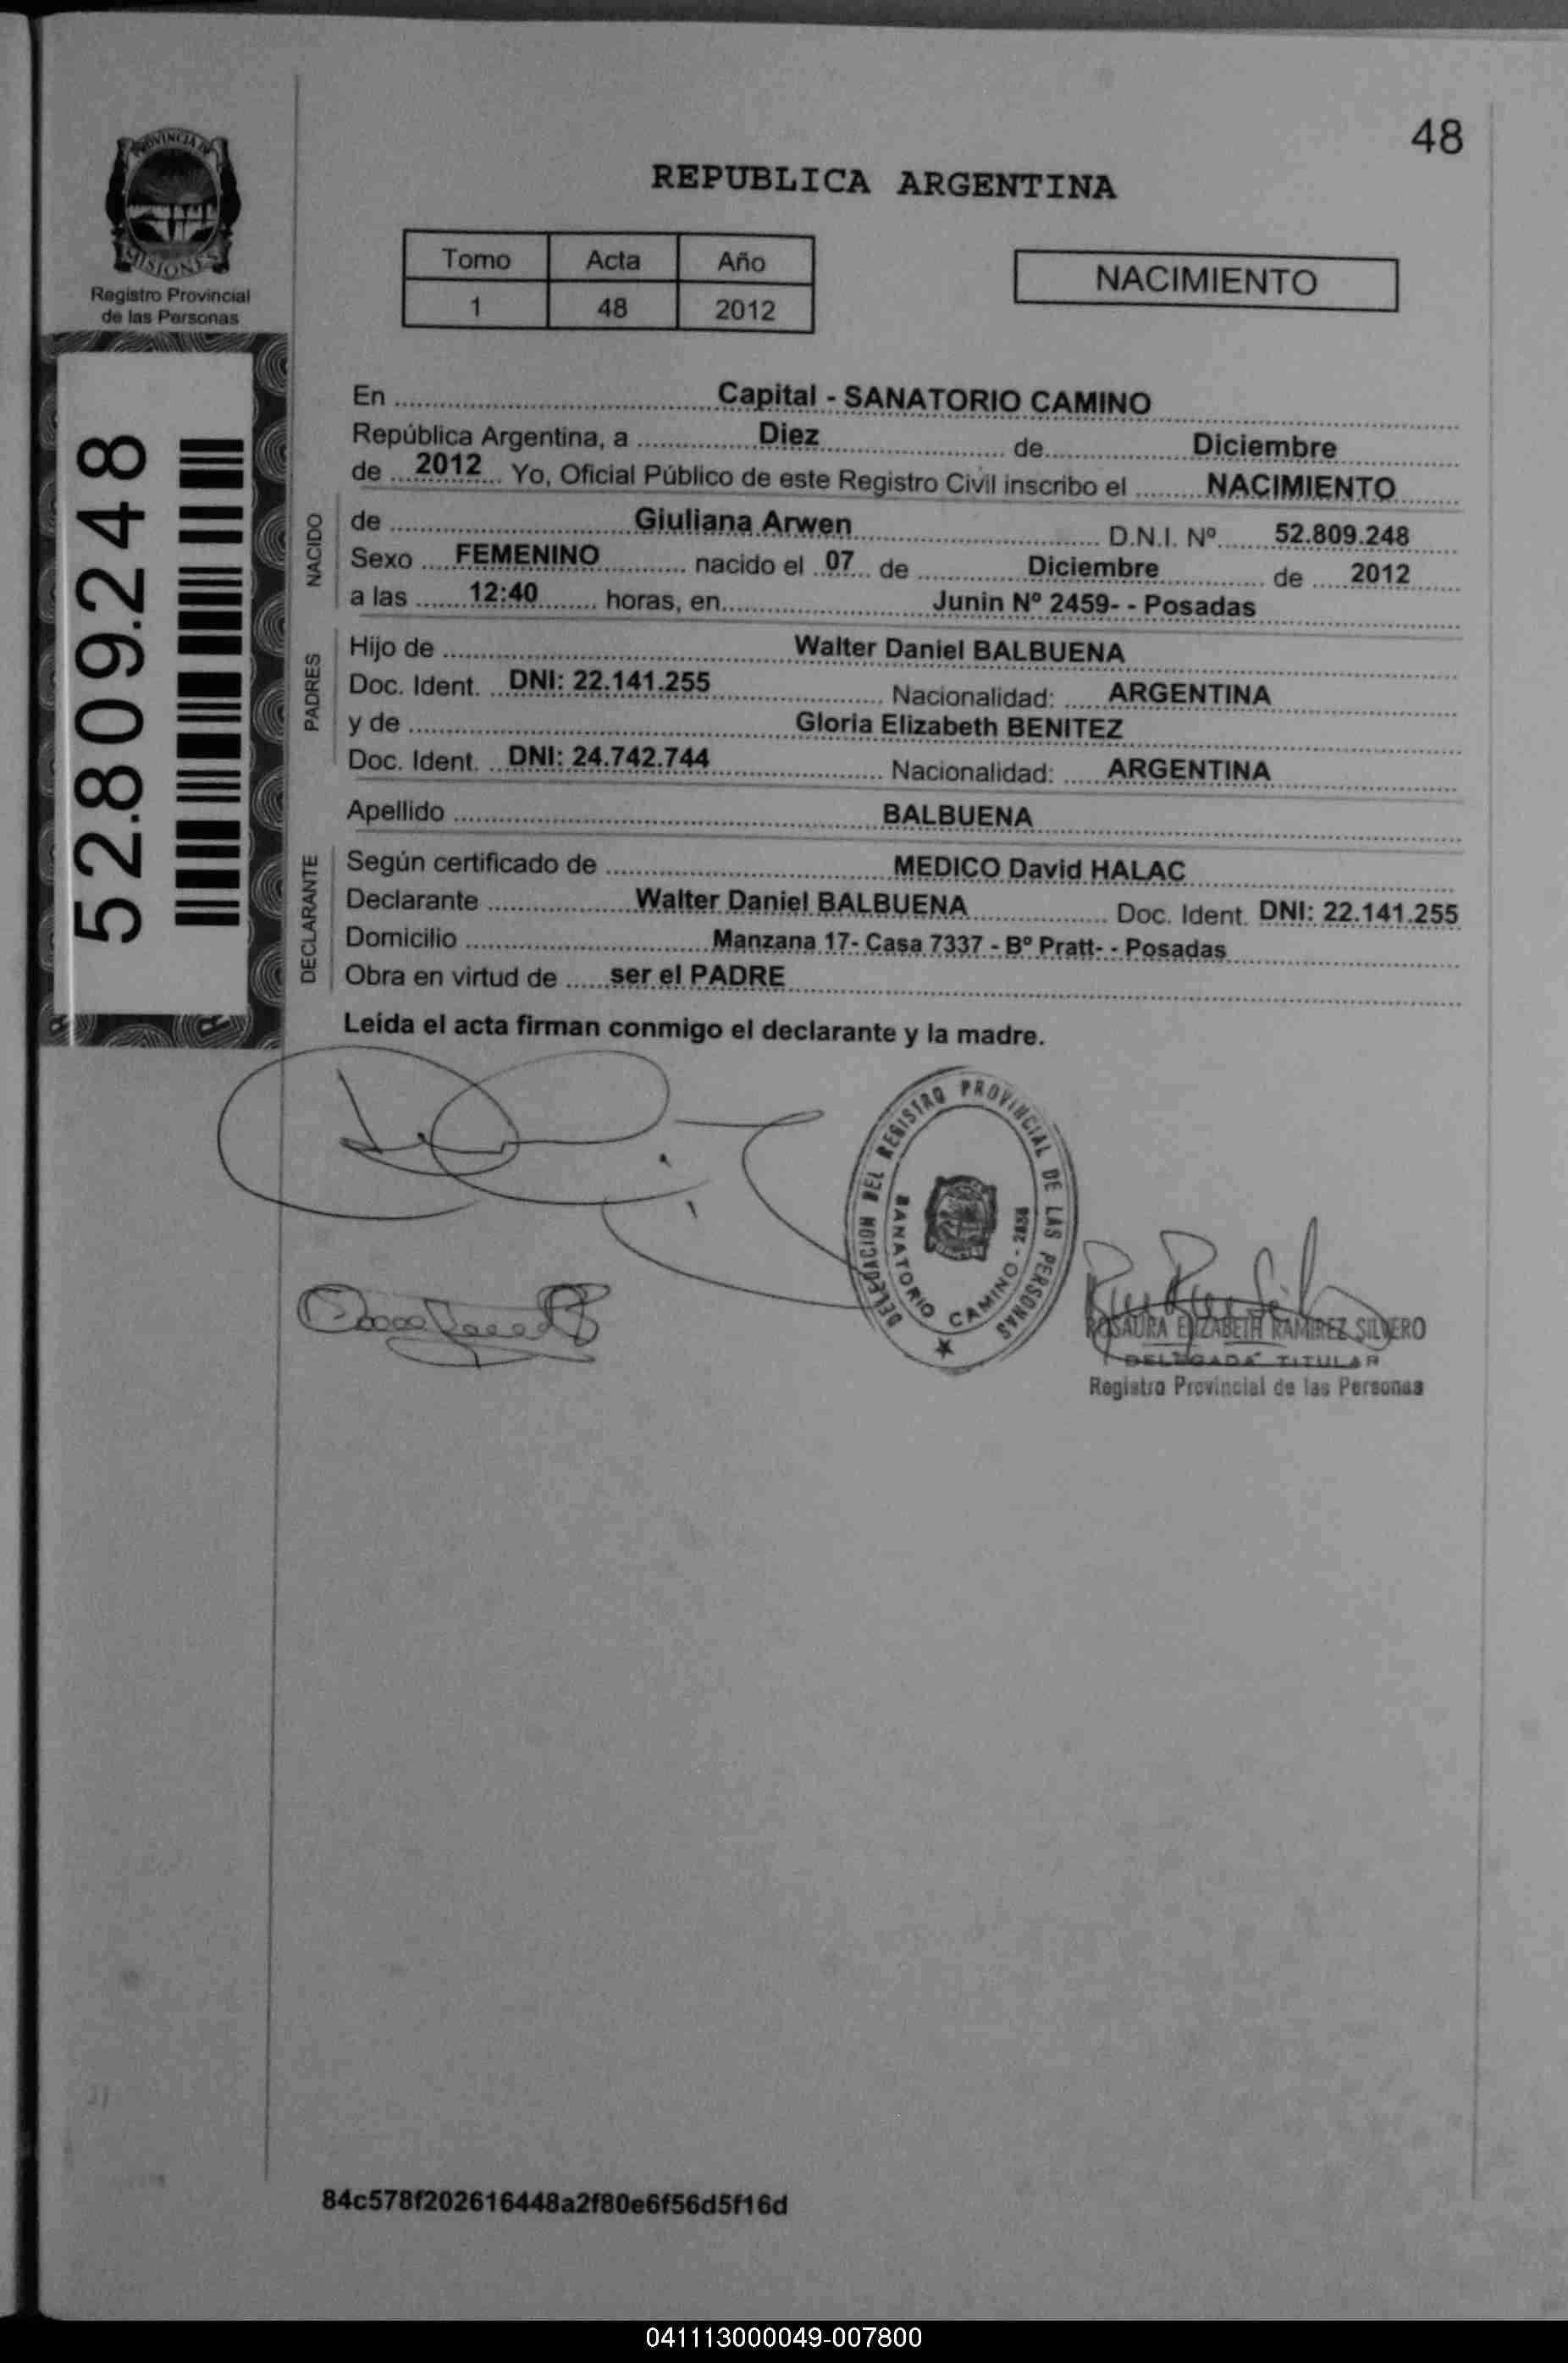 48
PROVINCIA DE
MISIONES
Registro Provincial
de las Personas
REPUBLICA ARGENTINA
Tomo Acta Año
1 48 2012
NACIMIENTO
52.809.248
En Capital - SANATORIO CAMINO
República Argentina, a Diez de Diciembre
de 2012 Yo, Oficial Público de este Registro Civil inscribo el NACIMIENTO
NACIDO
de Giuliana Arwen D.N.I. Nº 52.809.248
Sexo FEMENINO nacido el 07 de Diciembre de 2012
a las 12:40 horas, en Junin Nº 2459- - Posadas
PADRES
Hijo de Walter Daniel BALBUENA
Doc. Ident. DNI: 22.141.255 Nacionalidad: ARGENTINA
y de Gloria Elizabeth BENITEZ
Doc. Ident. DNI: 24.742.744 Nacionalidad: ARGENTINA
Apellido BALBUENA
DECLARANTE
Según certificado de MEDICO David HALAC
Declarante Walter Daniel BALBUENA Doc. Ident. DNI: 22.141.255
Domicilio Manzana 17- Casa 7337 - Bº Pratt- - Posadas
Obra en virtud de ser el PADRE
Leída el acta firman conmigo el declarante y la madre.
DELEGACION DEL REGISTRO PROVINCIAL DE LAS PERSONAS
SANATORIO CAMINO -
ROSAURA ELIZABETH RAMIREZ SILVERO
DELEGADA TITULAR
Registro Provincial de las Personas
84c578f202616448a2f80e6f56d5f16d
041113000049-007800